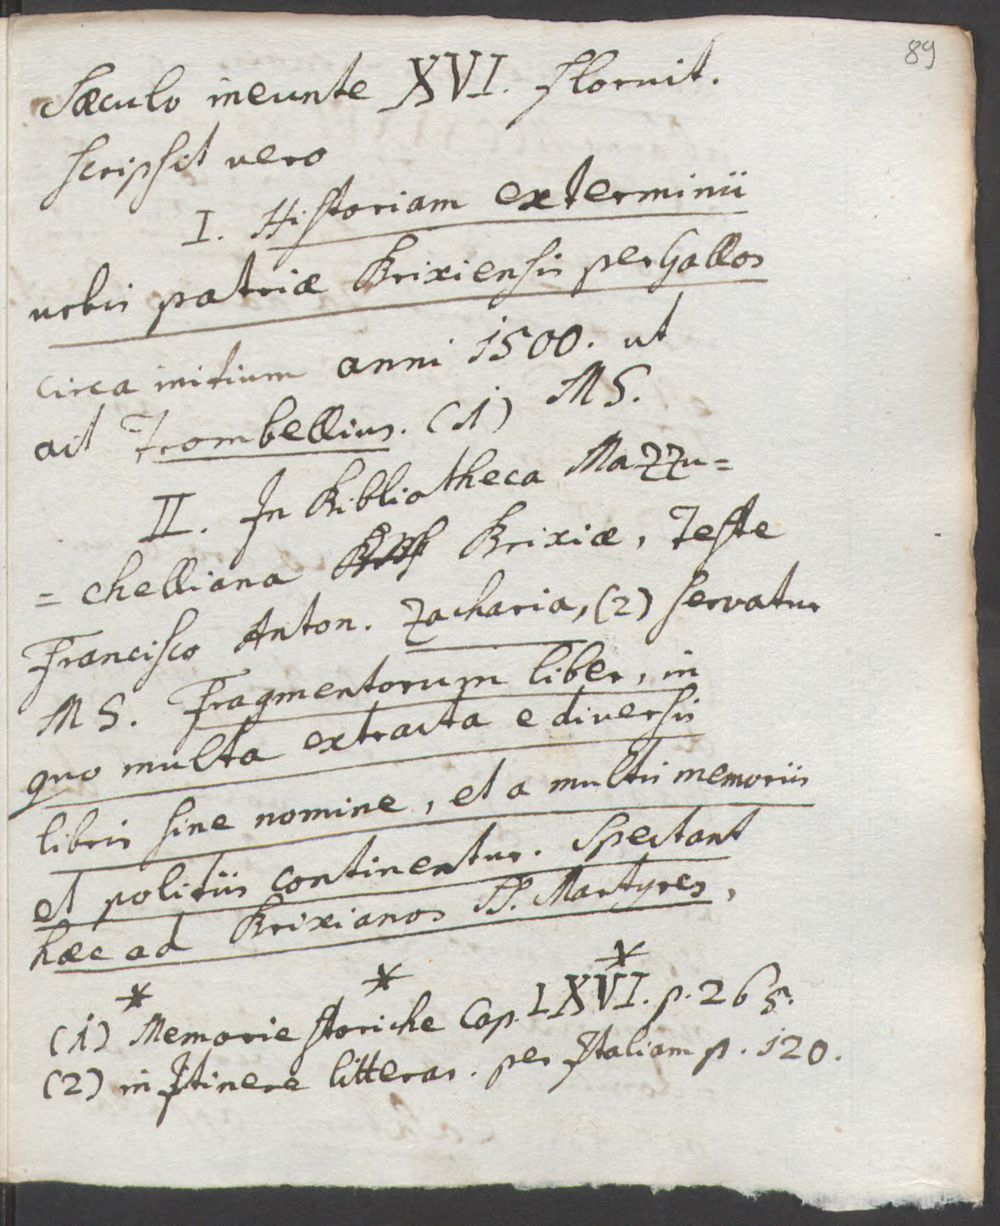 89
Sæculo ineunte XVI. floruit.
scripsit vero
I. Historiam exterminii
urbis patriæ Brixiensis per Gallos
circa initium anni 1500. ut
ait Trombellius. (1) MS.
II. In Bibliotheca Mazzu=
=chelliana Brixiæ, Teste
Francisco Anton. Zacharia, (2) servatur
MS. Fragmentorum liber, in
quo multa extracta e diversis
libris sine nomine, et a multis memoriis
et politiis continentur. Spectant
hæc ad Brixianos SS. Martyres,
* * *
(1) Memorie storiche Cap. LXVI. p. 265.
(2) in Itinere litterar. per Italiam p. 120.